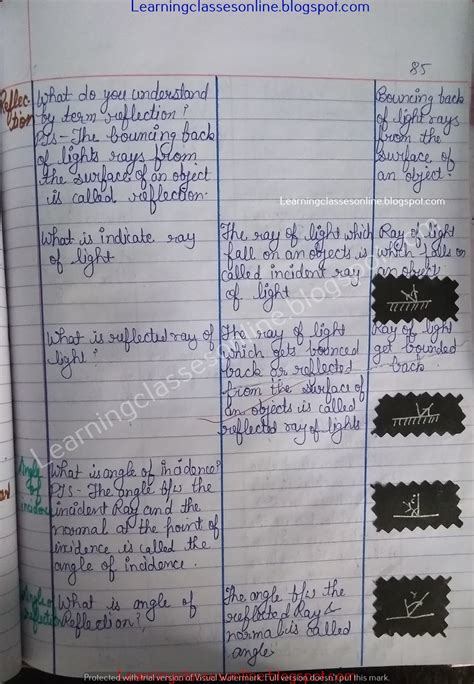 Learningclassesonline.blogspot.com
85
Reflec-
tion
What do you understand
by term reflection?
PTS - The bouncing back
of lights rays from
the surface of an object
is called reflection.
Bouncing back
of light rays
from the
surface of
an object.
Learningclassesonline.blogspot.com
What is indicate ray
of light
The ray of light which
fall on an objects is
called incident ray
of light
Ray of light
which falls on
an object
What is reflected ray of
light?
The ray of light
which gets bounced
back or reflected
from the surface of
an objects is called
reflected ray of lights
Ray of light
get bounded
back.
Learningclassesonline.blogspot.com
Angle
of
What is angle of incidence?
PTS - The angle b/w the
incident Ray and the
normal at the point of
incidence is called the
angle of incidence.
Angle of
reflection
What is angle of
Reflection?
The angle b/w the
reflected Ray &
normal is called
angle
Protected with trial version of Visual Watermark. Full version doesn't put this mark.